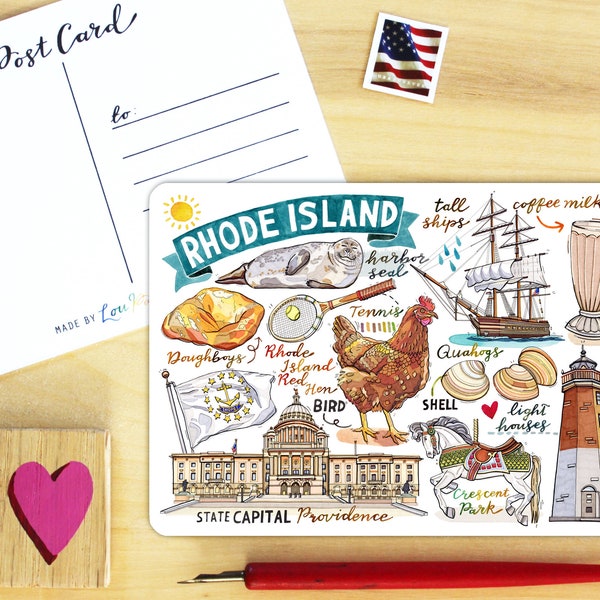 Post Card
to:
MADE BY
RHODE ISLAND
harbor
seal
tall
ships
coffee milk
Tennis
Doughboys
Rhode
Island
Red
Hen
BIRD
Quahogs
SHELL
light
houses
Crescent
Park
STATE CAPITAL Providence